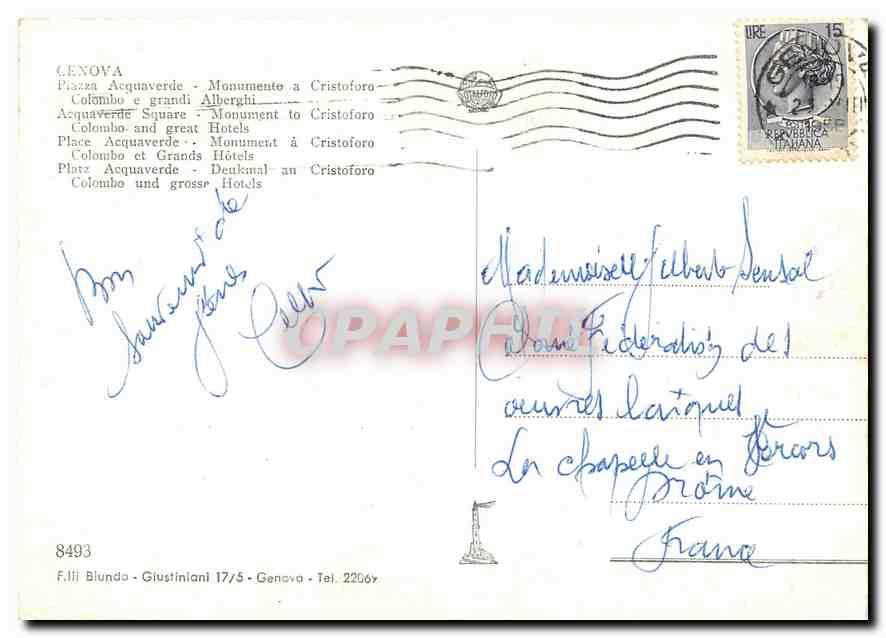 GENOVA
Piazza Acquaverde - Monumento a Cristoforo
Colombo e grandi Alberghi
Acquaverde Square - Monument to Cristoforo
Colombo and great Hotels
Place Acquaverde - Monument à Cristoforo
Colombo et Grands Hôtels
Platz Acquaverde - Deukmal an Cristoforo
Colombo und grosse Hotels
LIRE 15
POSTE
REPVBBLICA
ITALIANA
Bon
Souvenir de
Gênes
Mademoiselle Gilberte Sensal
Fédération des
oeuvres laïques
La Chapelle en Vercors
Drôme
France
CPAPHIL
8493
F.lli Biundo - Giustiniani 17/5 - Genova - Tel. 22069